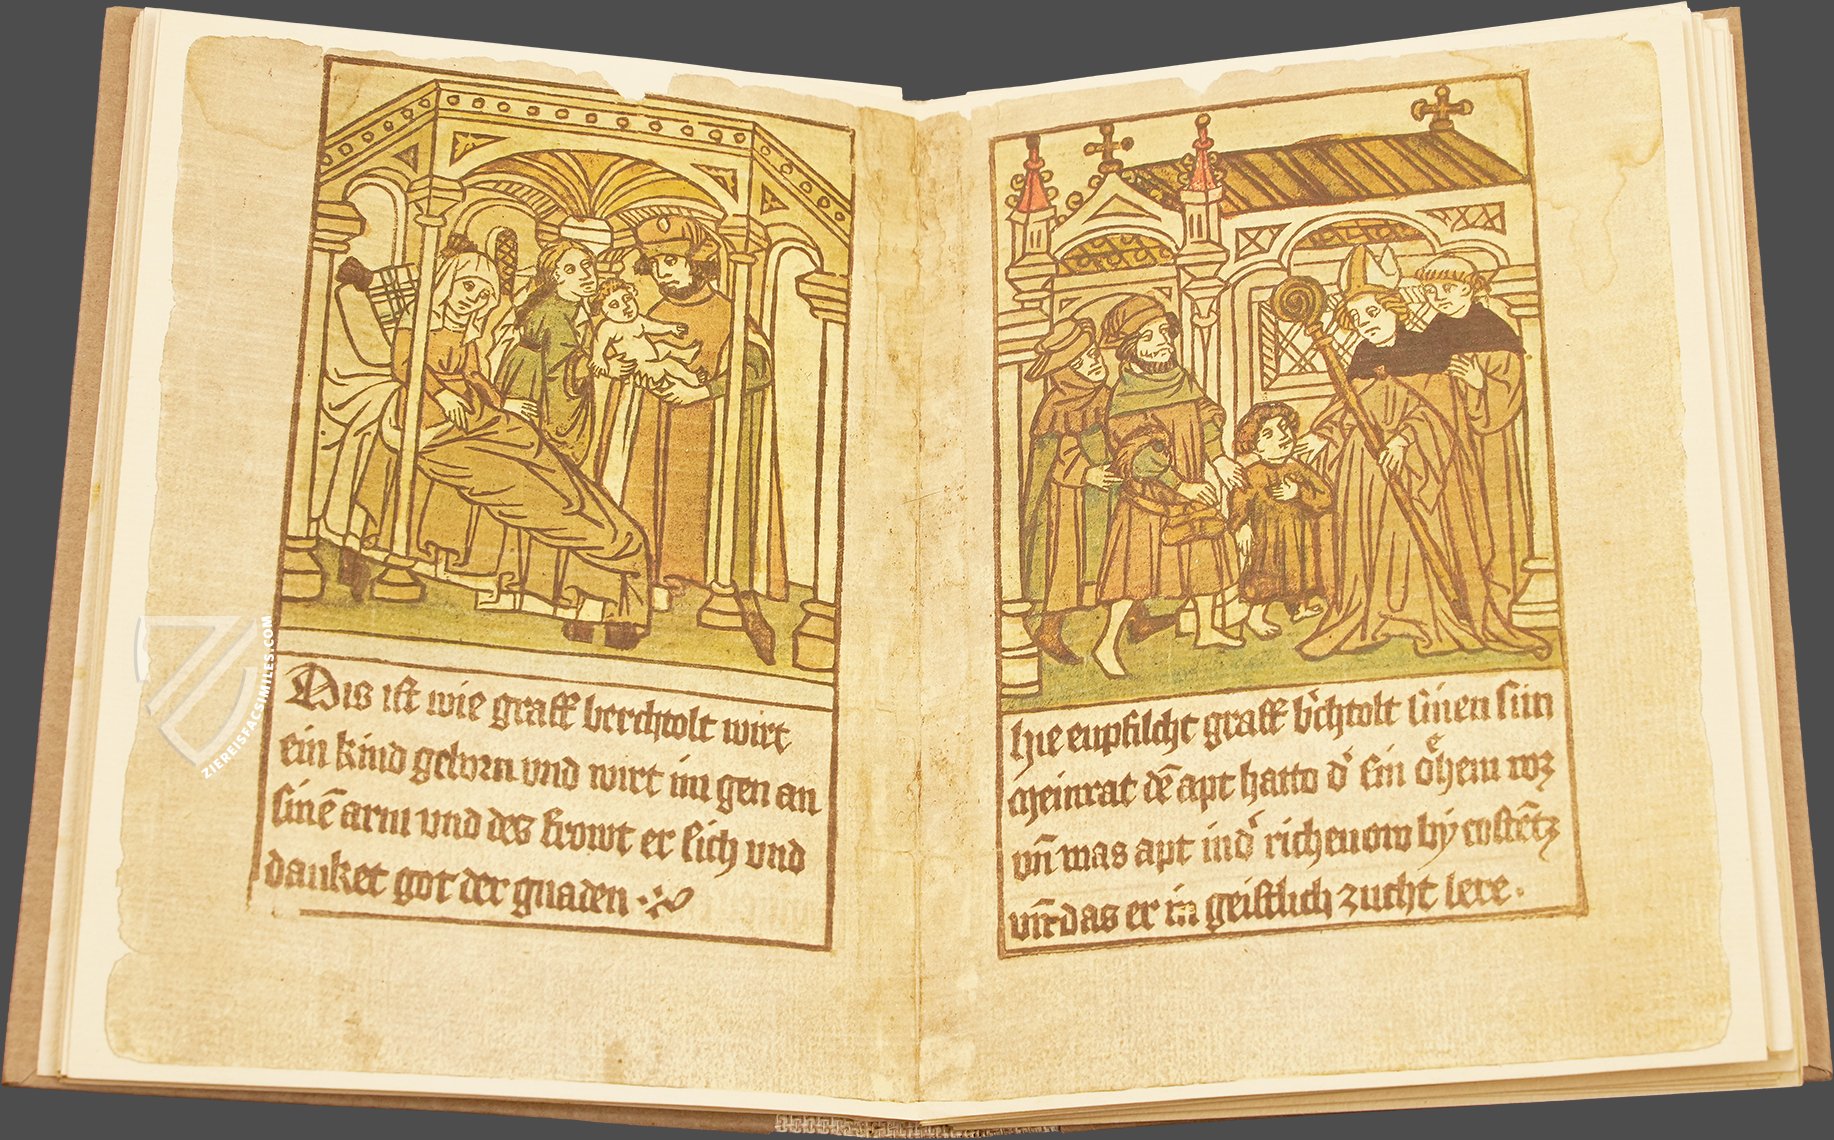 Dis ist wie graff berchtolt wirt
ein kind geborn vnd wirt im gen an
sinē arm vnd des frowt er sich vnd
danket got der gnaden
hie enpfilcht graff b'chtolt sinen sun
meinrat dē apt hatto d' sin oͤhem woz
vn̄ was apt in d' richenow by costētz
vn̄ das er in geistlich zucht lere.
ZIEREISFACSIMILES.COM